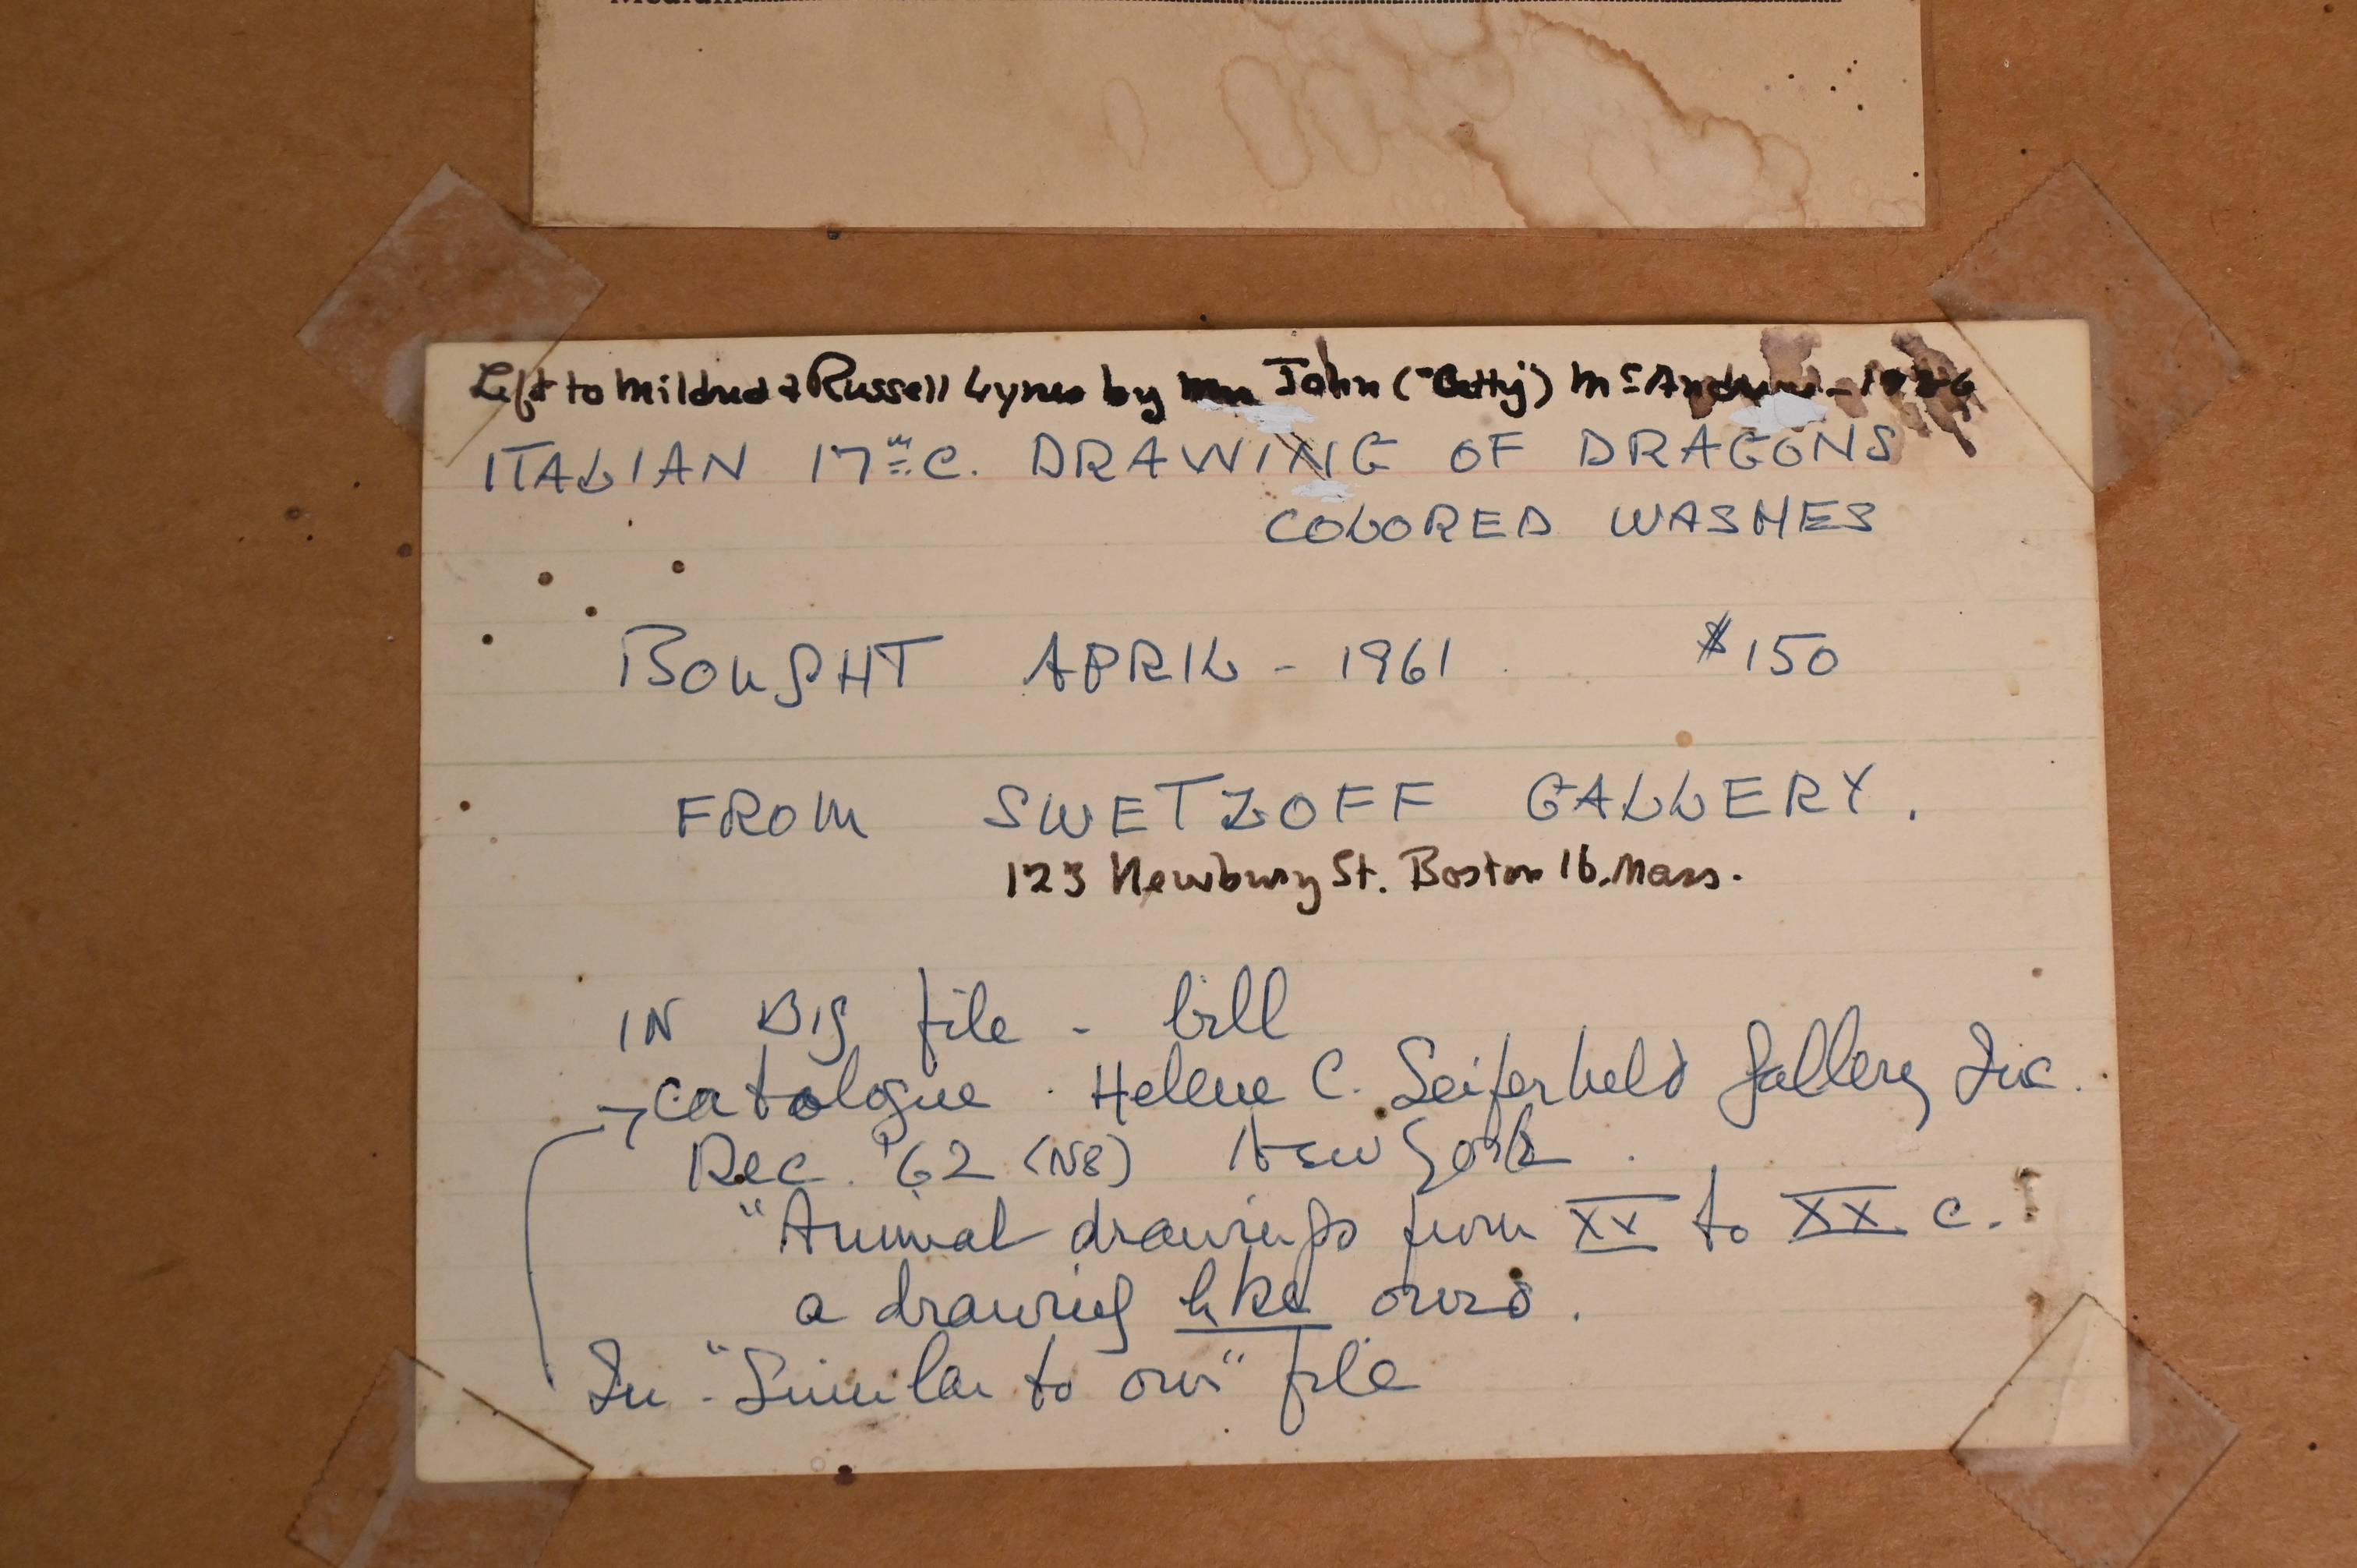 Medium
Left to Mildred & Russell Lynes by Mrs John ("Betty") McAndrew - 1986
ITALIAN 17th C. DRAWING OF DRAGONS
COLORED WASHES
BOUGHT APRIL - 1961 $150
FROM SWETZOFF GALLERY.
123 Newbury St. Boston 16. Mass.
IN BIG file - bill
→ catalogue . Helene C. Seiferheld Gallery Inc.
Dec. '62 (N8) New York .
"Animal drawings from XV to XX c.
a drawing like ours .
In "Similar to our" file